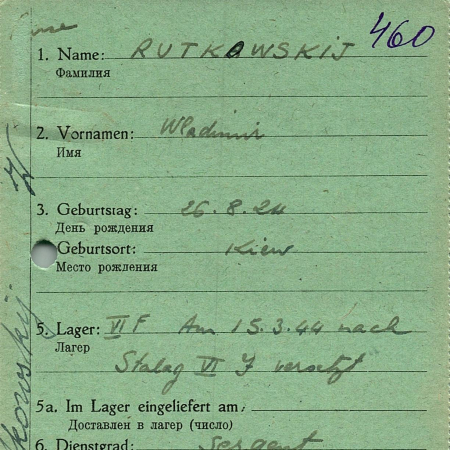 460
1. Name: RUTKOWSKIJ
Фамилия
2. Vornamen: Wladimir
Имя
3. Geburtstag: 26.8.24
День рождения
Geburtsort: Kiew
Место рождения
5. Lager: VI F Am 15.3.44 nach
Лагер
Stalag VI J versetzt
5a. Im Lager eingeliefert am:
Доставлен в лагер (число)
6. Dienstgrad: Sergent